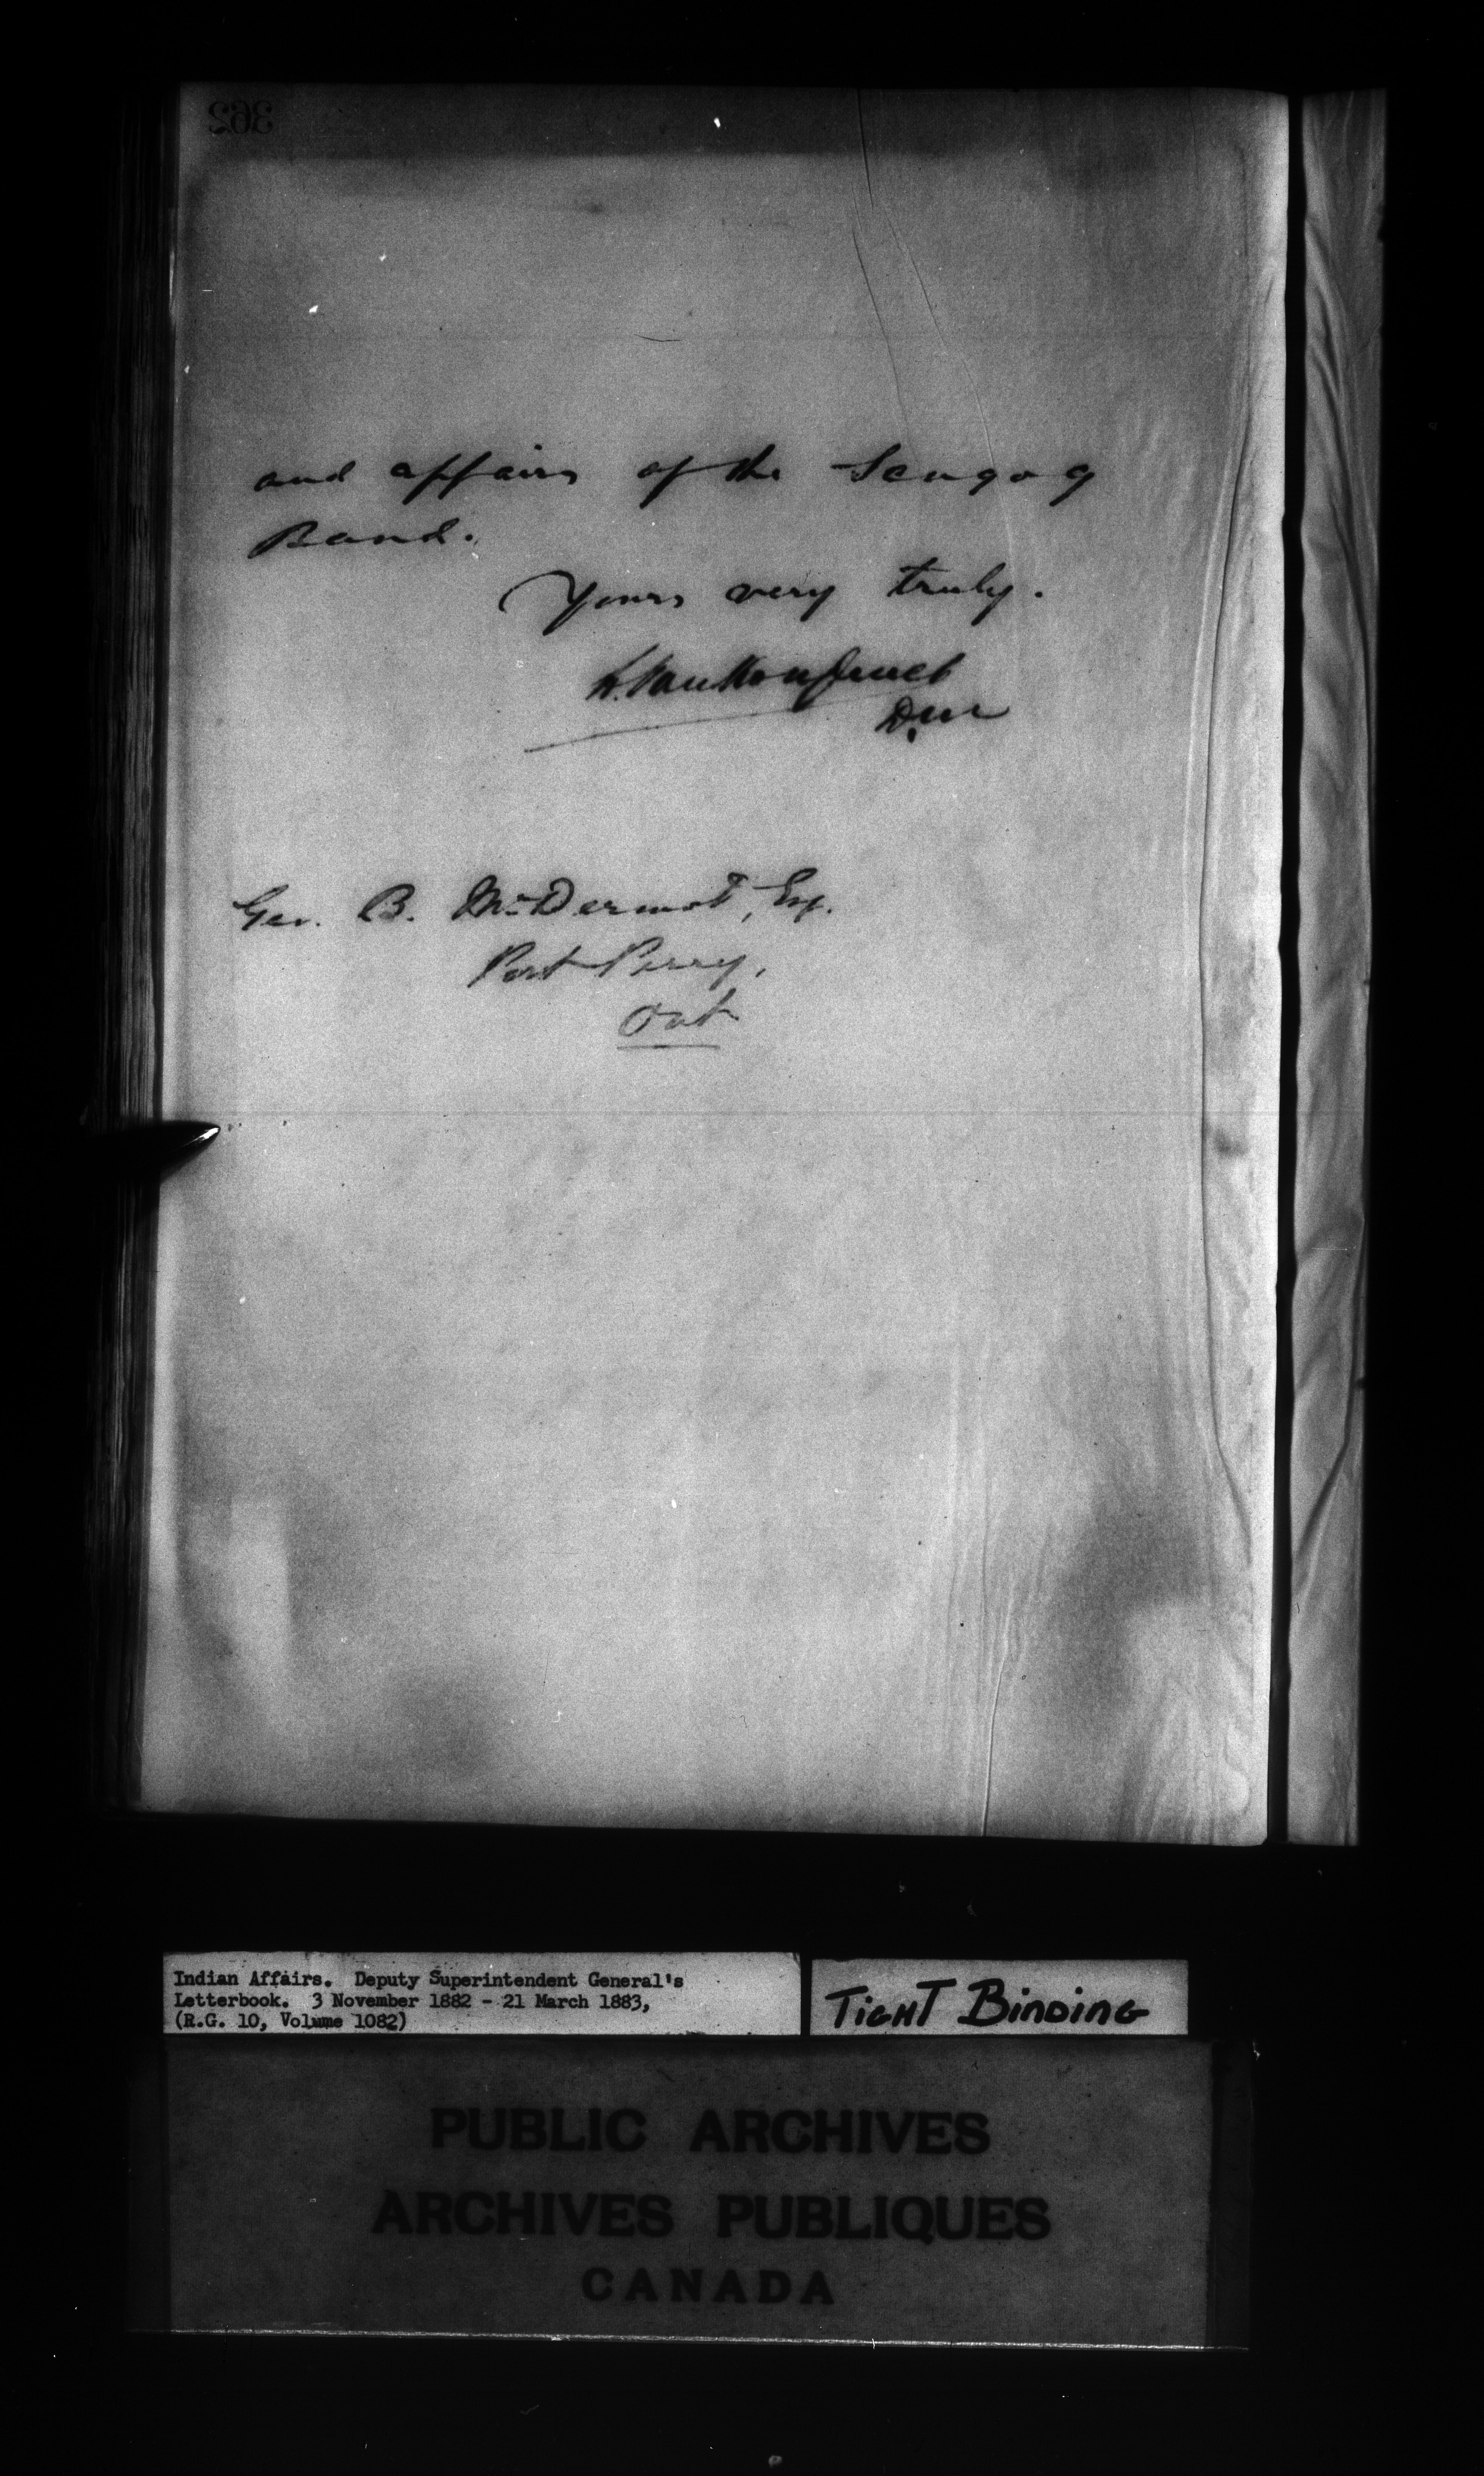 362
and affairs of the Scugog
Band.
Yours very truly.
L. Vankoughnet
Geo. B. McDermot, Esq.
Port Perry,
Ont
Indian Affairs. Deputy Superintendent General's
Letterbook. 3 November 1882 - 21 March 1883,
(R.G. 10, Volume 1082)
TIGHT BINDING
PUBLIC ARCHIVES
ARCHIVES PUBLIQUES
CANADA